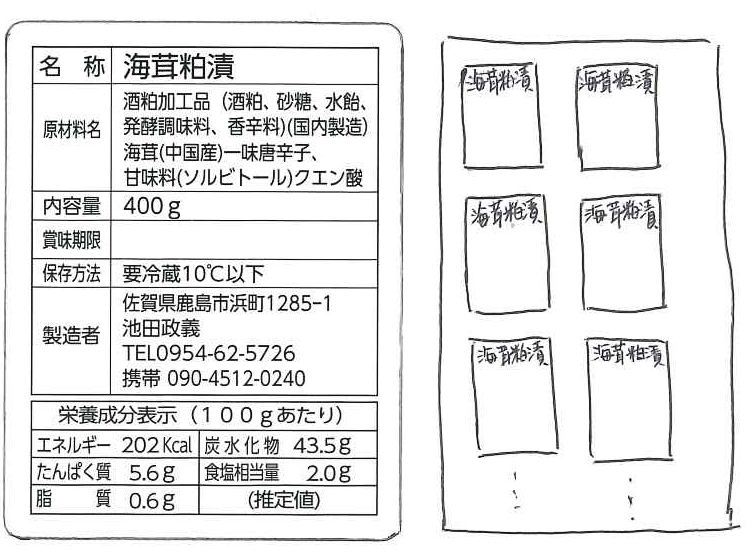 名 称 海茸粕漬
原材料名 酒粕加工品（酒粕、砂糖、水飴、
発酵調味料、香辛料)(国内製造)
海茸(中国産)一味唐辛子、
甘味料(ソルビトール)クエン酸
内容量 400g
賞味期限
保存方法 要冷蔵10℃以下
製造者 佐賀県鹿島市浜町1285-1
池田政義
TEL0954-62-5726
携帯 090-4512-0240
栄養成分表示（100gあたり）
エネルギー 202Kcal 炭水化物 43.5g
たんぱく質 5.6g 食塩相当量 2.0g
脂 質 0.6g (推定値)
海茸粕漬 海茸粕漬
海茸粕漬 海茸粕漬
海茸粕漬 海茸粕漬